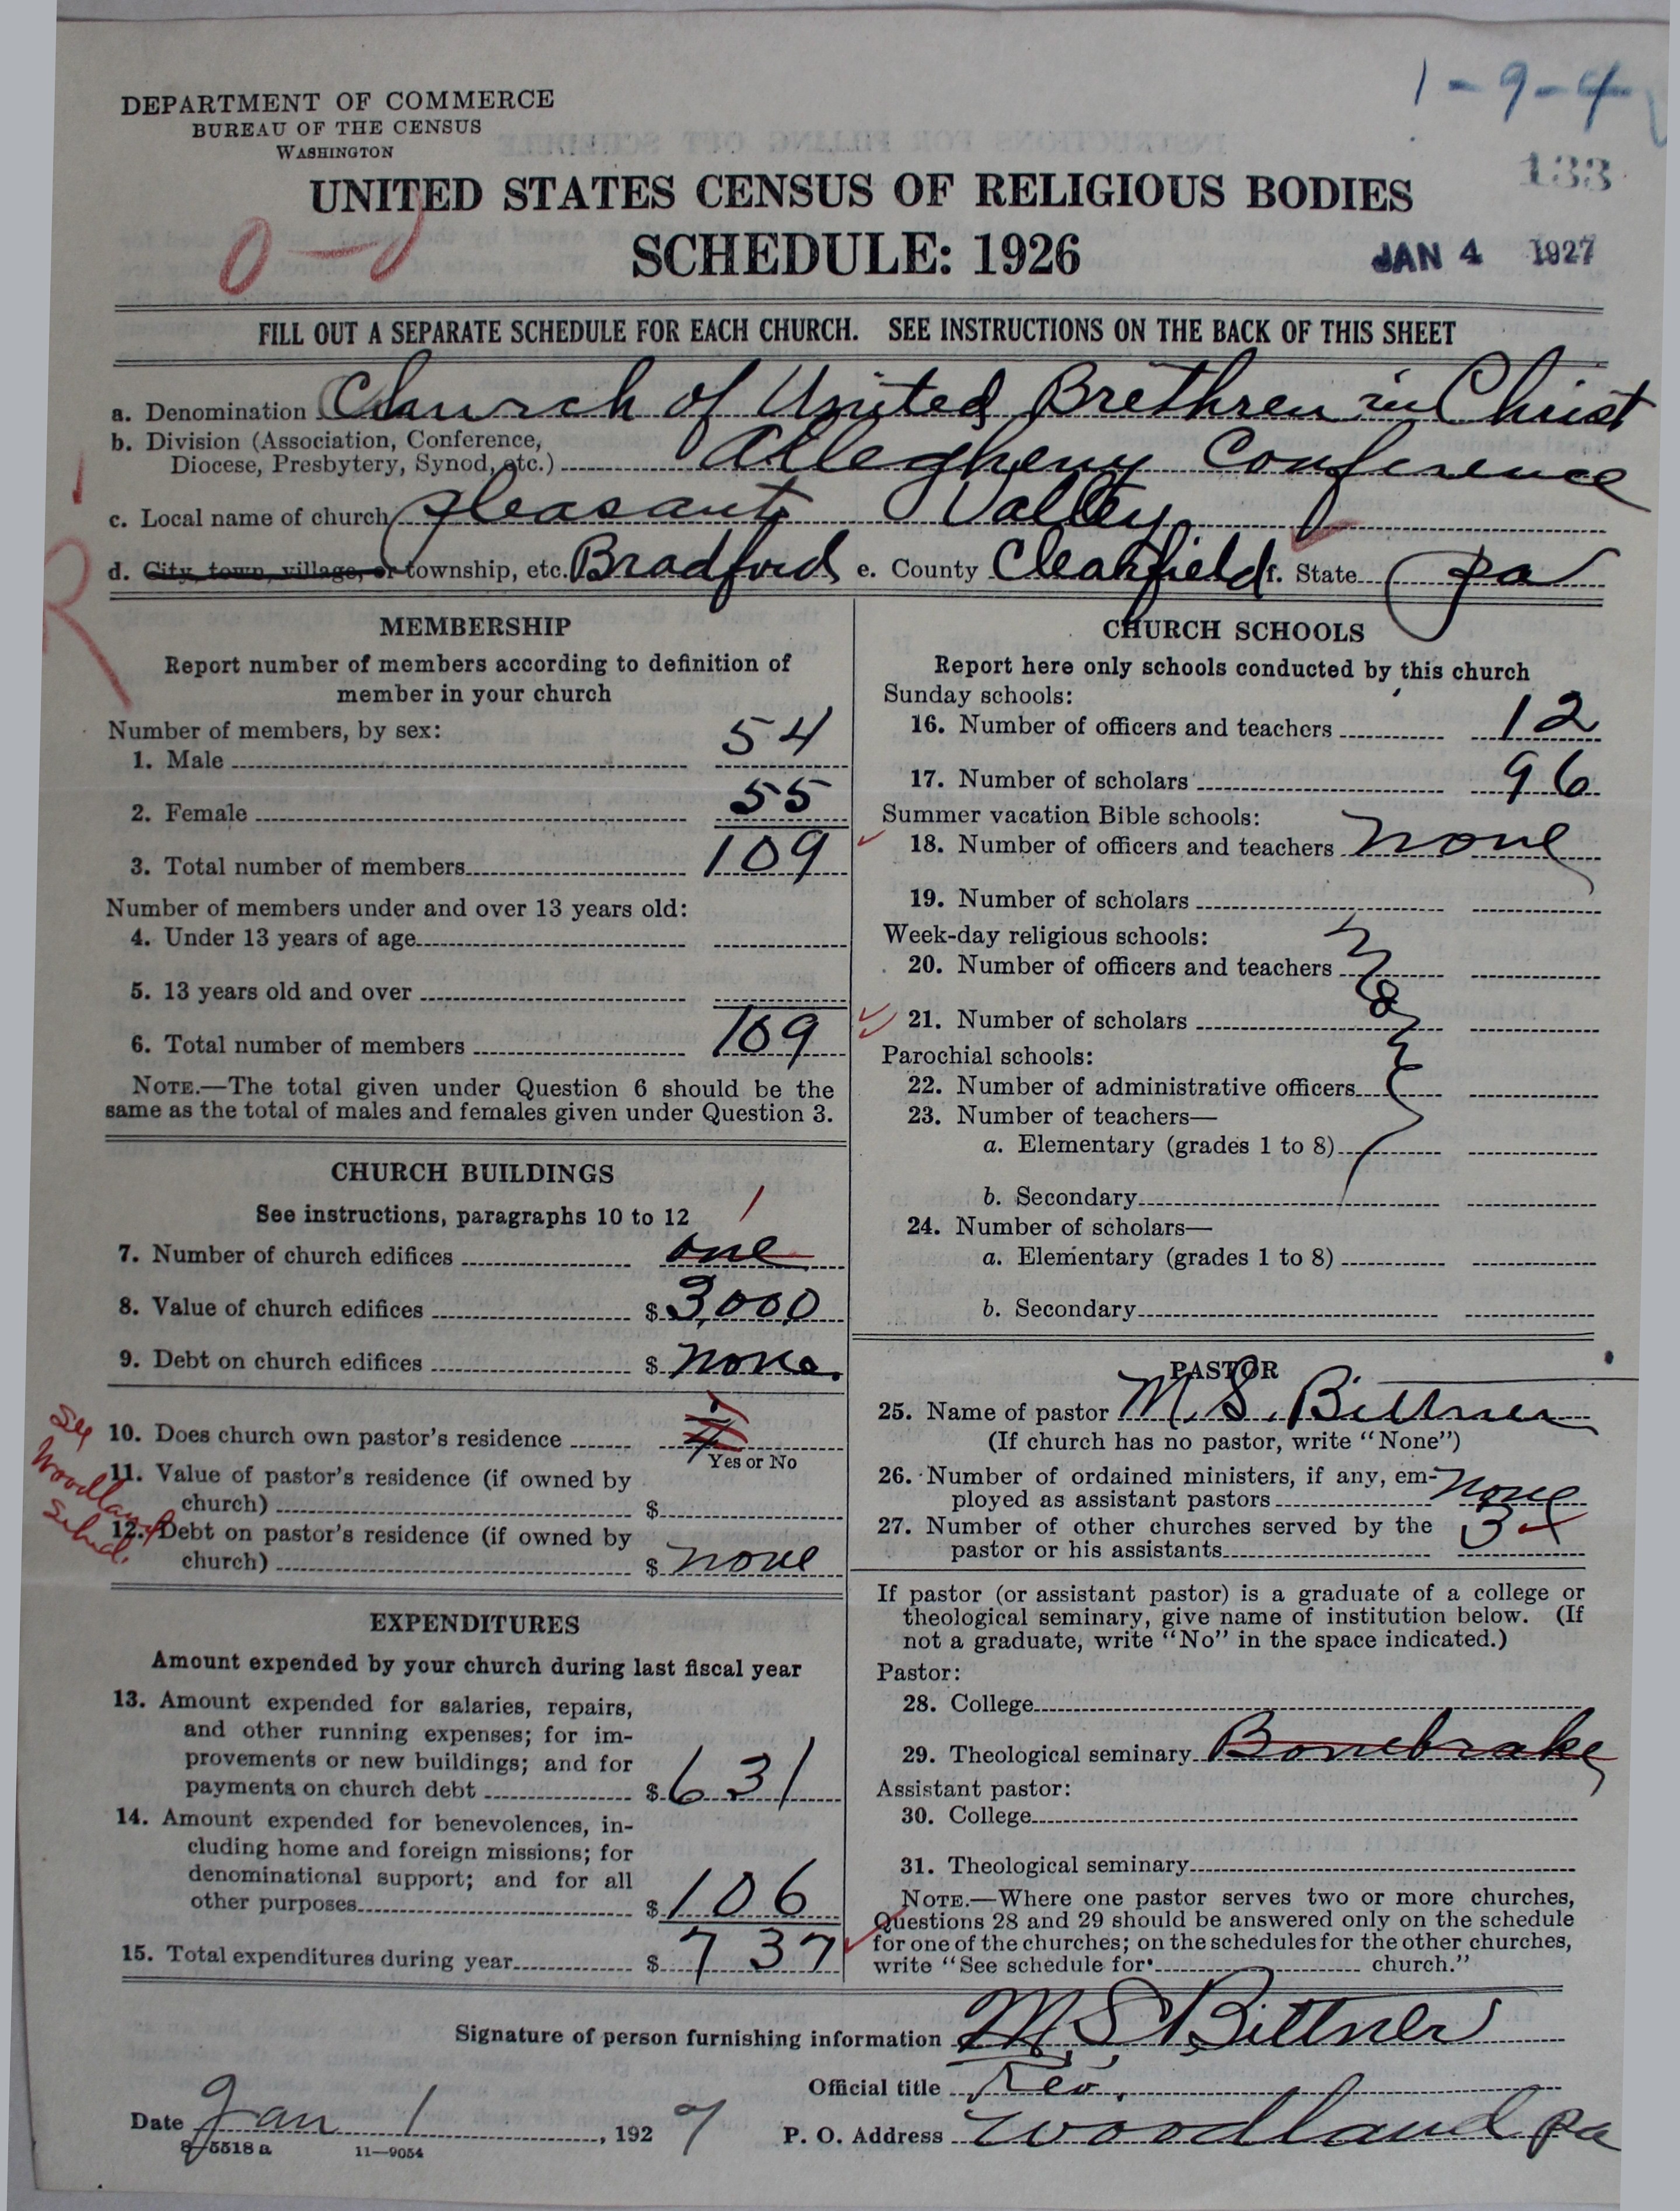 1-9-4
DEPARTMENT OF COMMERCE
BUREAU OF THE CENSUS
WASHINGTON
133
UNITED STATES CENSUS OF RELIGIOUS BODIES
SCHEDULE: 1926
JAN 4 1927
FILL OUT A SEPARATE SCHEDULE FOR EACH CHURCH. SEE INSTRUCTIONS ON THE BACK OF THIS SHEET
a. Denomination Church of United Brethren in Christ
b. Division (Association, Conference,
Diocese, Presbytery, Synod, etc.) Allegheny Conference
c. Local name of church Pleasant Valley
d. City, town, village, or township, etc. Bradford e. County Clearfield f. State Pa
MEMBERSHIP
Report number of members according to definition of
member in your church
Number of members, by sex:
1. Male 54
2. Female 55
3. Total number of members 109
Number of members under and over 13 years old:
4. Under 13 years of age
5. 13 years old and over
6. Total number of members 109
NOTE.—The total given under Question 6 should be the
same as the total of males and females given under Question 3.
CHURCH BUILDINGS
See instructions, paragraphs 10 to 12
1
7. Number of church edifices one
8. Value of church edifices $ 3,000
9. Debt on church edifices $ none.
10. Does church own pastor's residence
Yes or No
11. Value of pastor's residence (if owned by
church) $
12. Debt on pastor's residence (if owned by
church) $ none
See
Woodland
Sched.
EXPENDITURES
Amount expended by your church during last fiscal year
13. Amount expended for salaries, repairs,
and other running expenses; for im-
provements or new buildings; and for
payments on church debt $ 631
14. Amount expended for benevolences, in-
cluding home and foreign missions; for
denominational support; and for all
other purposes $ 106
15. Total expenditures during year $ 737
CHURCH SCHOOLS
Report here only schools conducted by this church
Sunday schools:
16. Number of officers and teachers 12
17. Number of scholars 96
Summer vacation Bible schools:
18. Number of officers and teachers none
19. Number of scholars
Week-day religious schools:
20. Number of officers and teachers
21. Number of scholars
Parochial schools:
22. Number of administrative officers
23. Number of teachers—
a. Elementary (grades 1 to 8)
b. Secondary
24. Number of scholars—
a. Elementary (grades 1 to 8)
b. Secondary
PASTOR
25. Name of pastor M. S. Bittner
(If church has no pastor, write "None")
26. Number of ordained ministers, if any, em-
ployed as assistant pastors none
27. Number of other churches served by the
pastor or his assistants 3
If pastor (or assistant pastor) is a graduate of a college or
theological seminary, give name of institution below. (If
not a graduate, write "No" in the space indicated.)
Pastor:
28. College
29. Theological seminary Bonebrake
Assistant pastor:
30. College
31. Theological seminary
NOTE.—Where one pastor serves two or more churches,
Questions 28 and 29 should be answered only on the schedule
for one of the churches; on the schedules for the other churches,
write "See schedule for church."
Signature of person furnishing information M. S. Bittner
Official title Rev.
Date Jan 1, 1927 P. O. Address Woodland Pa
8-5518 a 11-9054